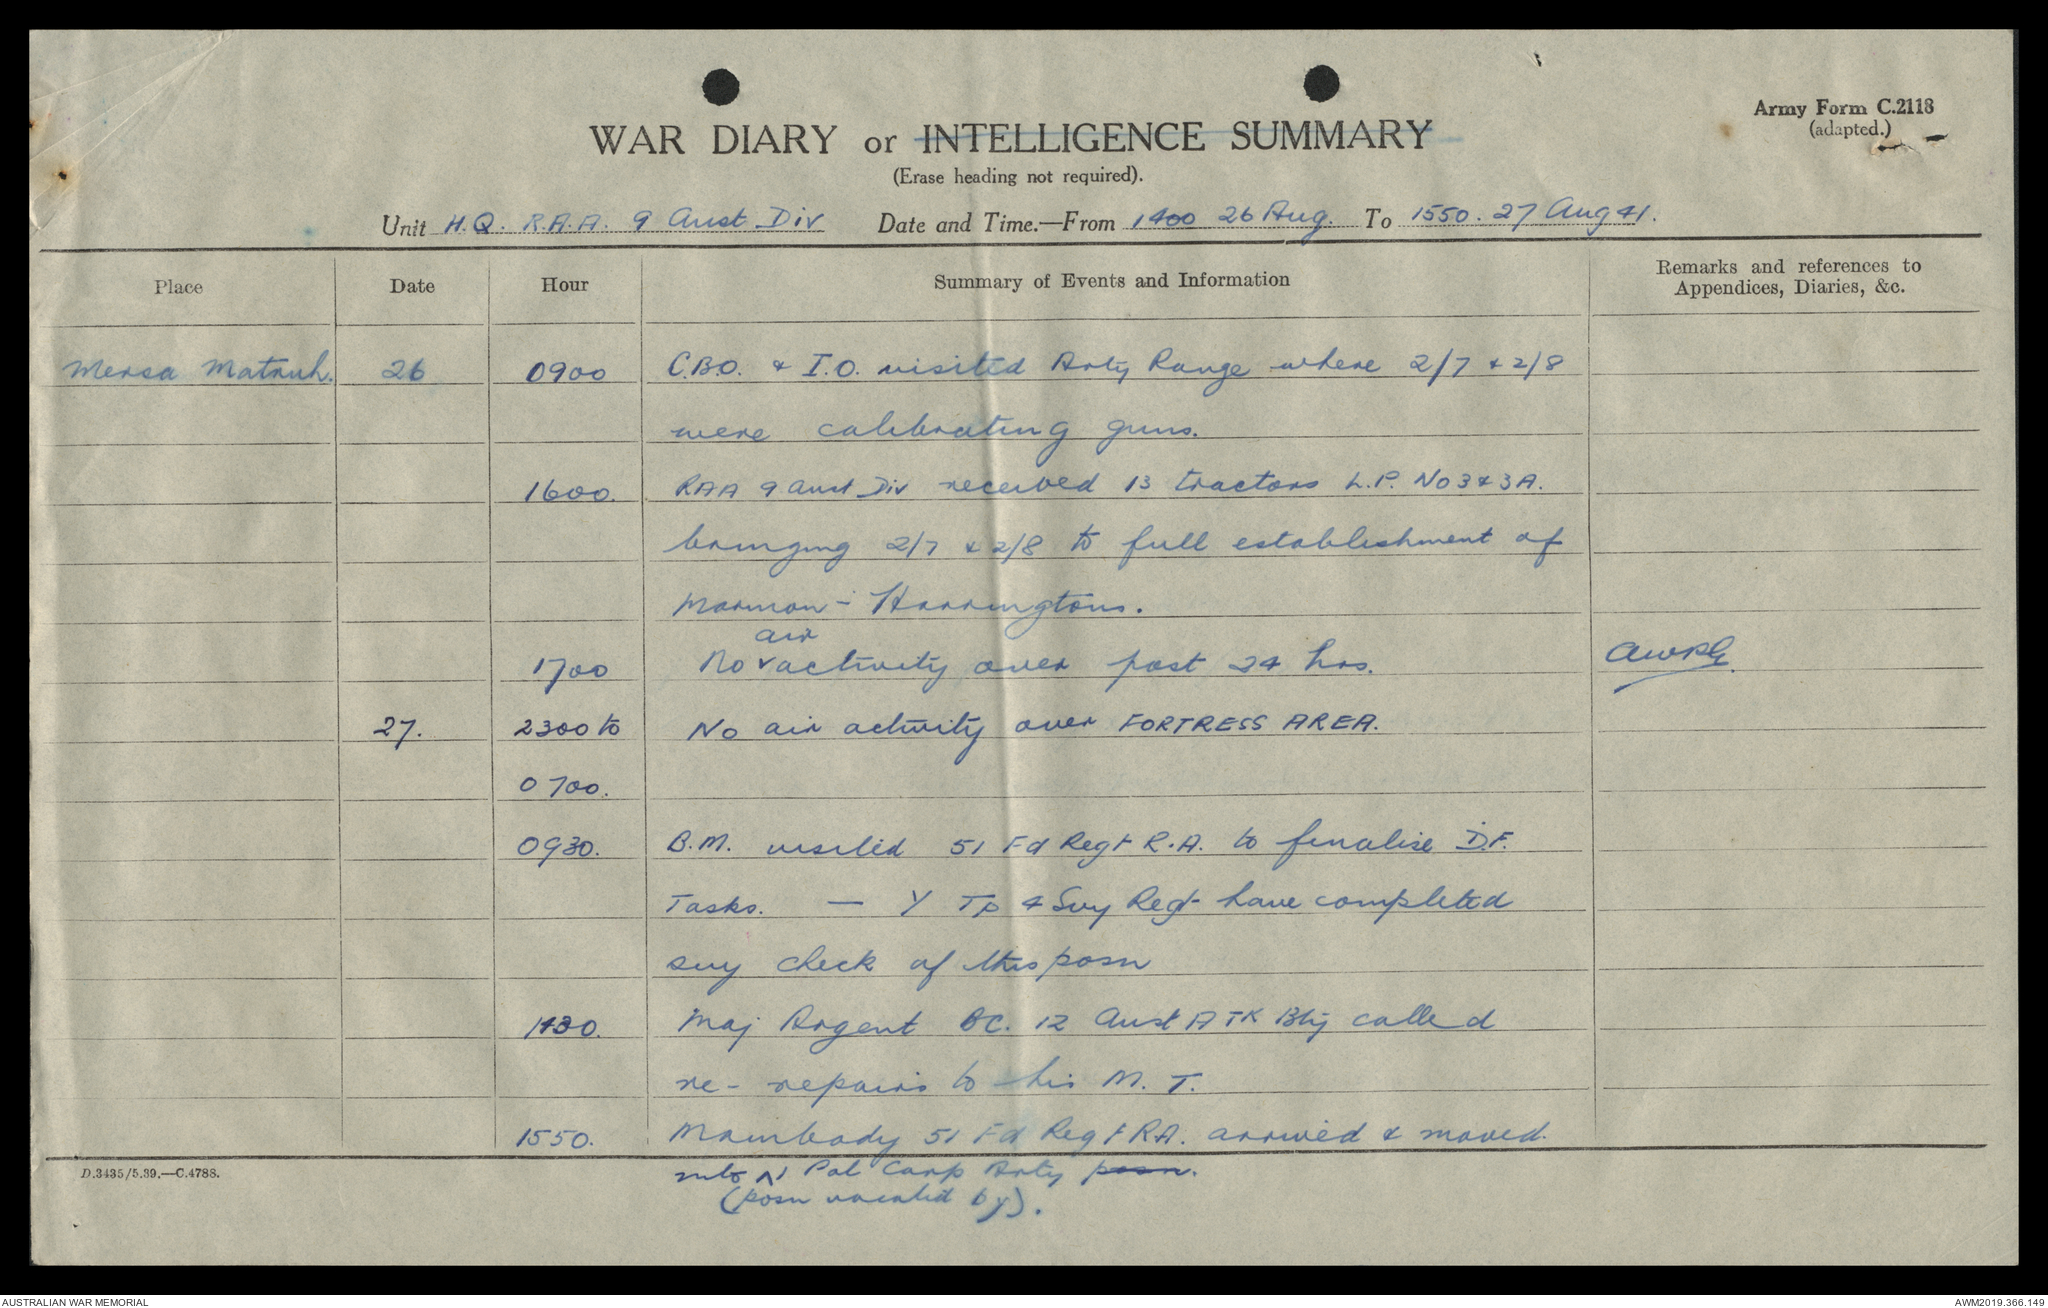 Army Form C.2118
(adapted.)
WAR DIARY or INTELLIGENCE SUMMARY
(Erase heading not required).
Unit H.Q. R.A.A. 9 Aust Div Date and Time.—From 1400 26 Aug. To 1550. 27 Aug 41.
Place Date Hour Summary of Events and Information Remarks and references to
Appendices, Diaries, &c.
Mersa Matruh. 26 0900 C.B.O. & I.O. visited Arty Range where 2/7 & 2/8
were calibrating guns.
1600. RAA 9 Aust Div received 13 tractors L.P. No 3 & 3A.
bringing 2/7 & 2/8 to full establishment of
Marmon-Harringtons.
air
1700 No activity over past 24 hrs.
27. 2300 to No air activity over FORTRESS AREA.
0700.
0930. B.M. visited 51 Fd Regt R.A. to finalise D.F.
Tasks. — Y Tp 4 Svy Regt have completed
svy check of this posn
1130. Maj Argent BC. 12 Aust A TK Bty called
re- repairs to his M.T.
1550. Mainbody 51 Fd Regt RA. arrived & moved
into 1 Pol Carp Arty posn.
(posn vacated by).
D.3435/5.39.—C.4788.
AUSTRALIAN WAR MEMORIAL
AWM2019.366.149